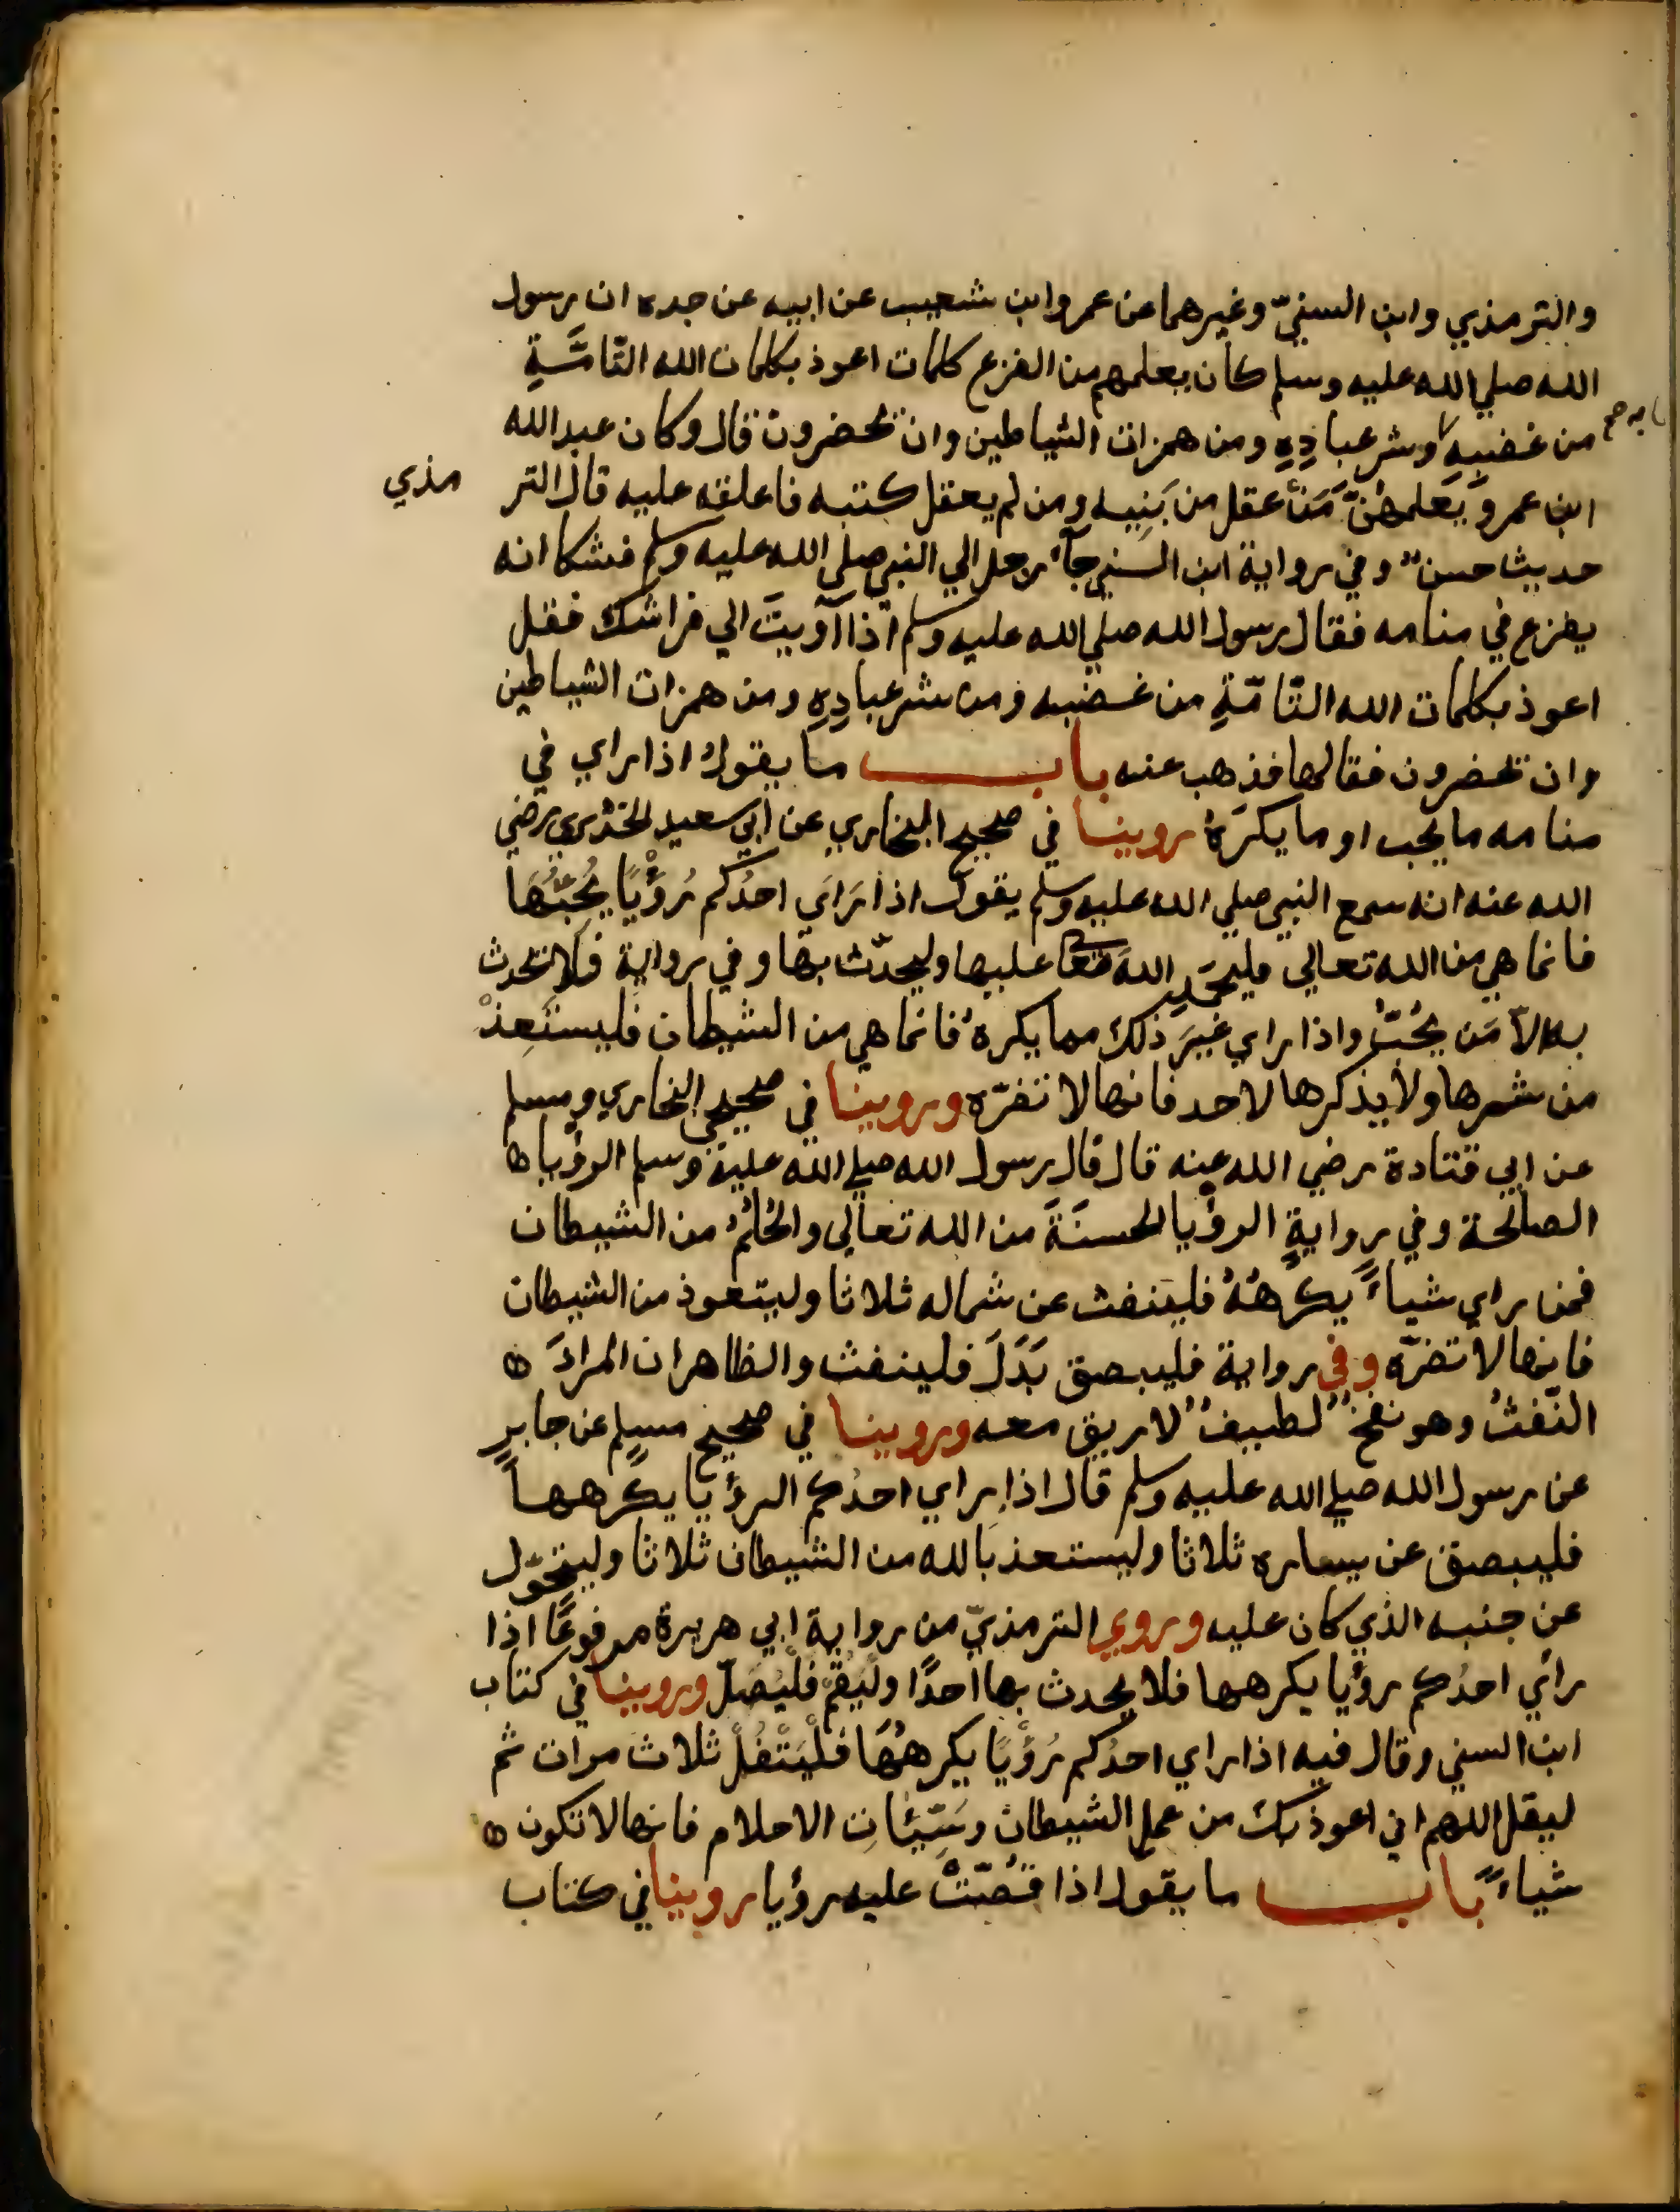 والترمذي وابن السنيّ وغيرهما عن عمرو ابن شعيب عن ابيه عن جده ان رسول
الله صلي الله عليه وسلم كان يعلمهم من الفزع كلمات اعوذ بكلمات الله التّامَّةِ
من غضبِهِ وشر عبادِهِ ومن همزات الشياطين وان يحضرون قال وكان عبد الله
ابن عمرو يَعلمهُنَّ مَنْ عقل من بَنِيه ومن لم يعقل كتبه فاعلقه عليه قال الترمذي
حديث حسنٌ وفي رواية ابن السني جآء رجل الي النبي صلي الله عليه وسلم فشكا انه
يفزع في منامه فقال رسول الله صلي الله عليه وسلم اذا آويتَ الي فراشك فقل
اعوذ بكلمات الله التّامّةِ من غضبه ومن شر عبادِهِ ومن همزات الشياطين
وان يحضرون فقالها فذهب عنه باب ما يقول اذا راي في
منامه ما يحب او ما يكرَهُ روينا في صحيح البخاري عن ابي سعيد الخدْري رضي
الله عنه انه سمع النبي صلي الله عليه وسلم يقول اذا رَاَي احدُكم رُؤْيًا يُحِبُّهَا
فانما هي من الله تعالي فليحمَدِ اللهَ تعا عليها وليحدّث بها وفي رواية فلا يحدث
بها الاّ مَن يُحُبُّ واذا راي غيرَ ذلك مما يكرهُ فانما هي من الشيطان فليستَعِذْ
من شرها ولا يذكرها لاحد فانها لا تضرّه وروينا في صحيحي البخاري ومسلم
عن ابي قتادة رضي الله عنه قال قال رسول الله صلي الله عليه وسلم الرؤيا
الصالحة وفي روايةٍ الرؤيا الحسنَةَ من الله تعالي والحُلمُ من الشيطان
فمن راي شياءً يكرهُهُ فلينفث عن شماله ثلاثا وليتعوذ من الشيطان
فانها لا تضرّه وفي رواية فليبصق بَدَلَ فلينفث والظاهر ان المرادَ
النّفثُ وهو نفخٌ لطيفٌ لا ريق معه وروينا في صحيح مسلمٍ عن جابرٍ
عن رسول الله صلي الله عليه وسلم قال اذا راي احدُكم الرؤيا يكرهها
فليبصق عن يساره ثلاثا وليستعذ بالله من الشيطان ثلاثا وليتحوّل
عن جنبه الذي كان عليه وروي الترمذيّ من رواية ابي هريرة مرفوعًا اذا
راي احدُكم رؤيا يكرهها فلا يحدث بها احدًا وليَقُمْ فليُصَلّ وروينا في كتاب
ابن السني وقال فيه اذا راي احدُكم رُؤْيًا يكرهُهَا فَلْيَتْفُلْ ثلاث مرات ثم
ليقل اللهم اني اعوذ بك من عمل الشيطان وسَيّئاتِ الاحلام فانها لا تكون
شياءً باب ما يقول اذا قُصَّتْ عليه رؤيا روينا في كتاب